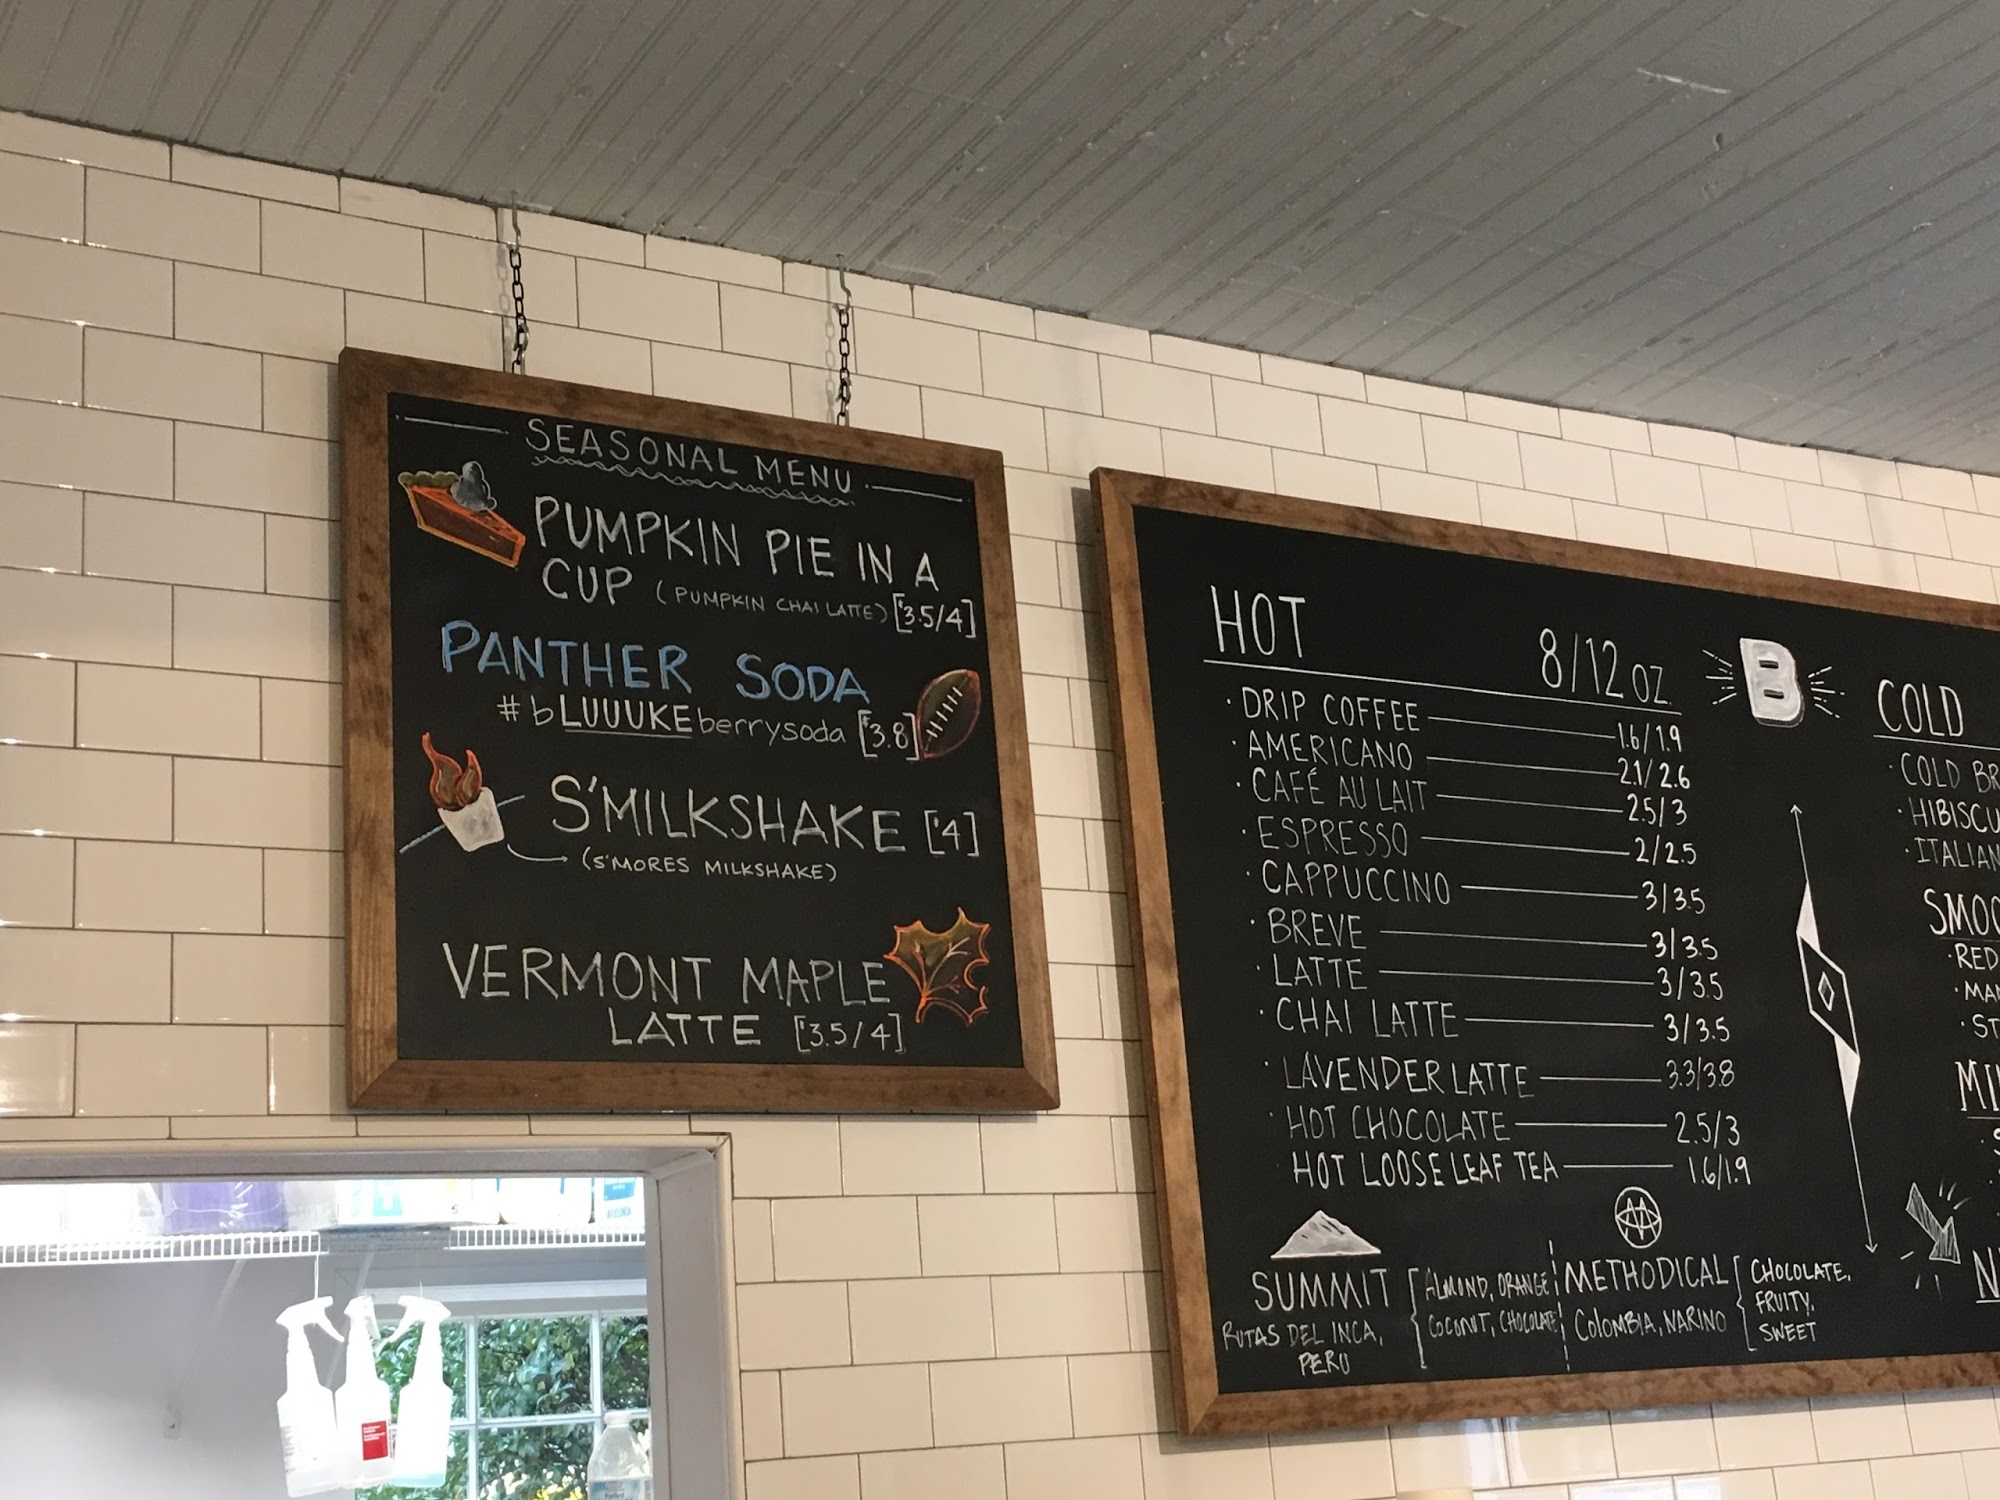 SEASONAL MENU
PUMPKIN PIE IN A
CUP (PUMPKIN CHAI LATTE) [$3.5/4]
PANTHER SODA
#bLUUUKEberrysoda [$3.8]
S'MILKSHAKE [$4]
(S'MORES MILKSHAKE)
VERMONT MAPLE
LATTE [$3.5/4]
HOT 8/12 OZ.
· DRIP COFFEE 1.6/1.9
· AMERICANO 2.1/2.6
· CAFÉ AU LAIT 2.5/3
· ESPRESSO 2/2.5
· CAPPUCCINO 3/3.5
· BREVE 3/3.5
· LATTE 3/3.5
· CHAI LATTE 3/3.5
· LAVENDER LATTE 3.3/3.8
· HOT CHOCOLATE 2.5/3
HOT LOOSE LEAF TEA 1.6/1.9
SUMMIT
RUTAS DEL INCA,
PERU
ALMOND, ORANGE
COCONUT, CHOCOLATE
METHODICAL
COLOMBIA, NARINO
CHOCOLATE,
FRUITY,
SWEET
B
COLD
· COLD BR
· HIBISCU
· ITALIAN
SMOO
· RED
· MAN
· ST
MI
N